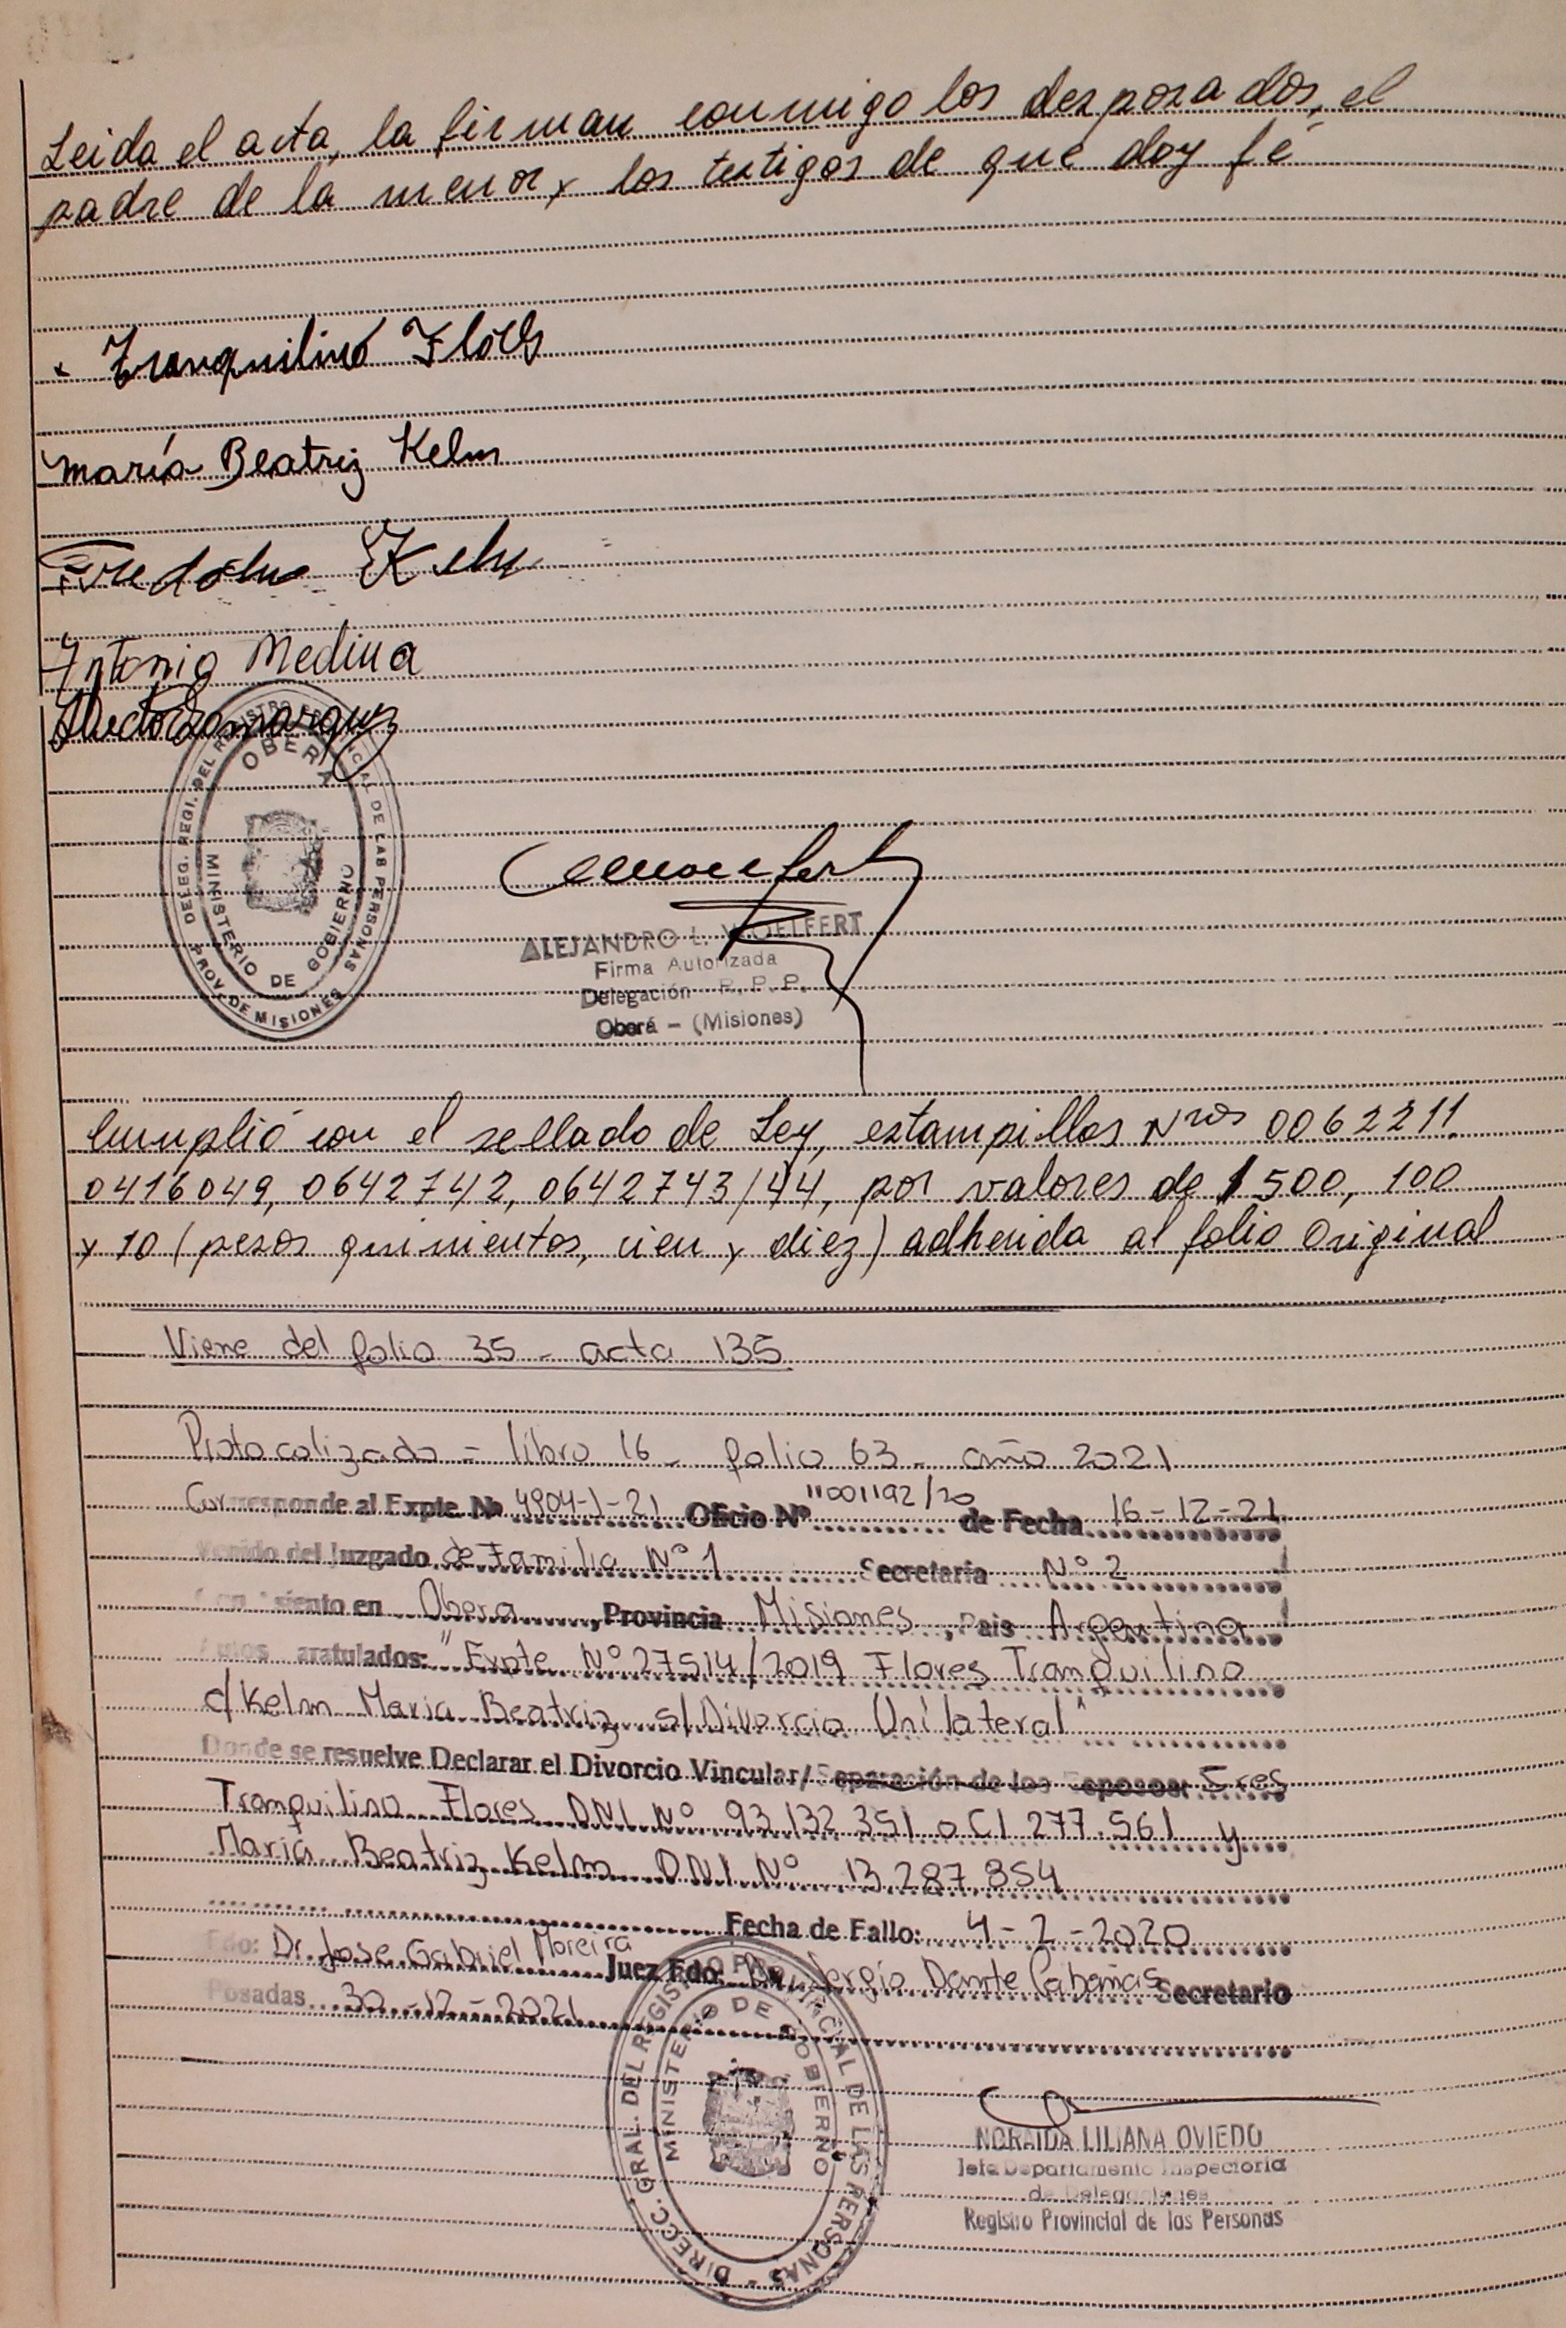 Leida el acta, la firman conmigo los desposados, el
padre de la menor y los testigos de que doy fé
Tranquilino Flores
María Beatriz Kelm
Kelm
Antonio Medina
DELEG. REGI. DEL REGISTRO PROVINCIAL DE LAS PERSONAS
OBERA
MINISTERIO DE GOBIERNO
PROV. DE MISIONES
ALEJANDRO L. WOELFERT
Firma Autorizada
Delegación R. P. P.
Oberá - (Misiones)
Cumplió con el sellado de Ley, estampillas Nros 0062211
0416049, 0642742, 0642743/44, por valores de $ 500, 100
y 10 (pesos quinientos, cien y diez) adherida al folio Original
Viene del folio 35 - acta 135
Protocolizado - libro 16 - folio 63 - año 2021
Corresponde al Expte. Nº 4904-1-21 Oficio Nº 11001192/20 de Fecha 16-12-21
Venido del Juzgado de Familia Nº 1 Secretaría Nº 2
Con asiento en Obera, Provincia Misiones, Pais Argentina
Autos caratulados: "Expte Nº 27514/2019 Flores Tranquilino
c/ Kelm Maria Beatriz s/ Divorcio Unilateral"
Donde se resuelve Declarar el Divorcio Vincular/ Separación de los Esposos: Sres
Tranquilino Flores DNI Nº 93 132 351 o CI 277.561 y
María Beatriz Kelm DNI Nº 13 287 854
Fecha de Fallo: 4-2-2020
Fdo: Dr. Jose Gabriel Moreira Juez Fdo: Sergio Dante Cabañas Secretario
Posadas 30-12-2021
DIRECC. GRAL. DEL REGISTRO PROVINCIAL DE LAS PERSONAS
MINISTERIO DE GOBIERNO
NORAIDA LILIANA OVIEDO
Jefa Departamento Inspectoria
de Delegaciones
Registro Provincial de las Personas